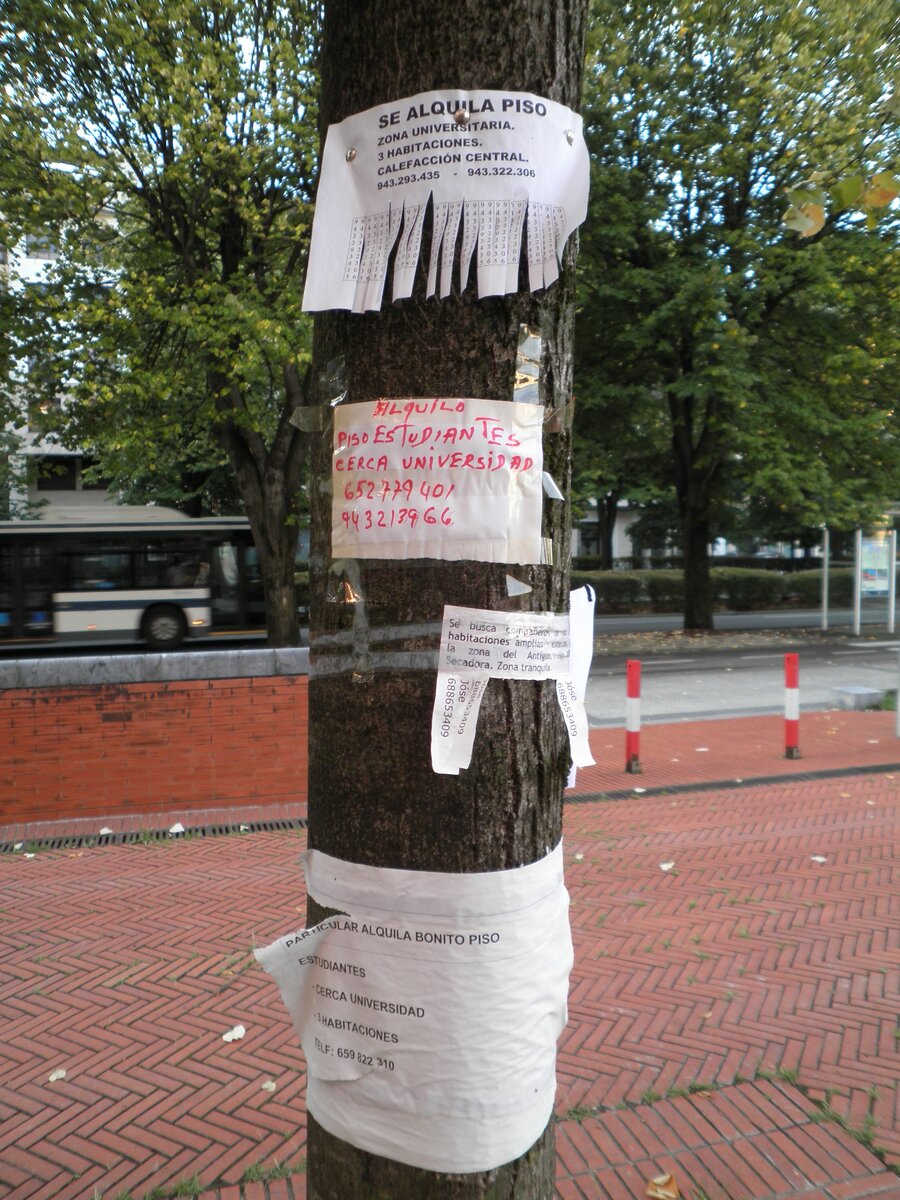 SE ALQUILA PISO
ZONA UNIVERSITARIA.
3 HABITACIONES.
CALEFACCIÓN CENTRAL.
943.293.435 - 943.322.306
ALQUILO
PISO ESTUDIANTES
CERCA UNIVERSIDAD
652779401
943213966
Se busca compañeros de
habitaciones amplias y
la zona del Antiguo
Secadora. Zona tranquila.
Jóse
688653409
Jóse
688653409
PARTICULAR ALQUILA BONITO PISO
ESTUDIANTES
- CERCA UNIVERSIDAD
- 3 HABITACIONES
TELF: 659 822 310